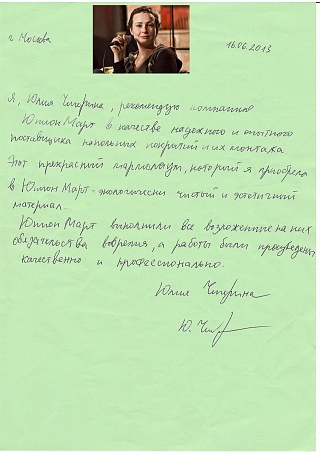 г. Москва
16.06.2013
Я, Юлия Чичерина, рекомендую компанию
Юнион Март в качестве надежного и опытного
поставщика напольных покрытий и их монтажа
Этот прекрасный мармолеум, который я приобрела
в Юнион Март - экологически чистый и эстетичный
материал.
Юнион Март выполнили все возложенные на них
обязательства вовремя, а работы были произведены
качественно и профессионально.
Юлия Чичерина
Ю. Чич